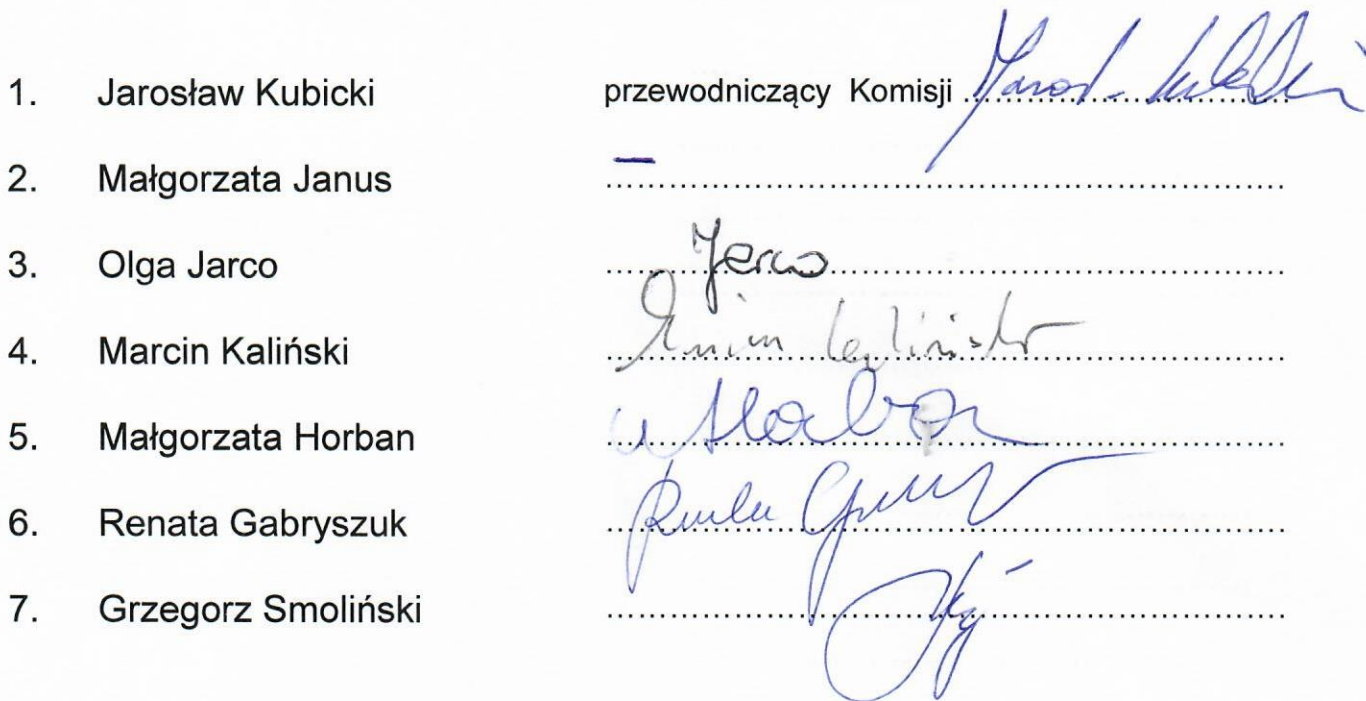 1. Jarosław Kubicki przewodniczący Komisji ................................
2. Małgorzata Janus – ................................
3. Olga Jarco ........Jarco................................
4. Marcin Kaliński ................................
5. Małgorzata Horban ................................
6. Renata Gabryszuk ................................
7. Grzegorz Smoliński ................................